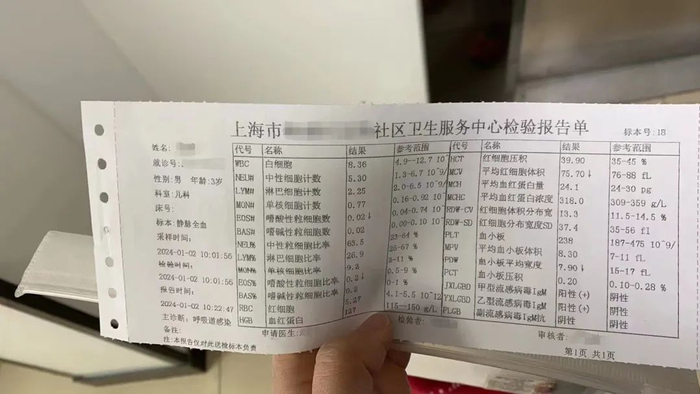 上海市 社区卫生服务中心检验报告单
标本号:18
姓名:
就诊号:
性别:男 年龄:3岁
科室:儿科
床号:
标本:静脉全血
采样时间:
2024-01-02 10:01:56
检验时间:
2024-01-02 10:01:56
报告时间:
2024-01-02 10:22:47
主诊断:呼吸道感染
备注:
注:本报告仅对此送检标本负责
代号 名称 结果 参考范围 代号 名称 结果 参考范围
WBC 白细胞 8.36 4.9--12.7 10^ HCT 红细胞压积 39.90 35-45 %
NEU# 中性细胞计数 5.30 1.3-6.7 10^9/ MCV 平均红细胞体积 75.70↓ 76-88 fL
LYM# 淋巴细胞计数 2.25 2.0-6.5 10^9/ MCH 平均血红蛋白量 24.1 24-30 pg
MON# 单核细胞计数 0.77 0.16-0.92 10^ MCHC 平均血红蛋白浓度 318.0 309-359 g/L
EOS# 嗜酸性粒细胞数 0.02↓ 0.04-0.74 10^ RDW-CV 红细胞体积分布宽 13.3 11.5-14.5 %
BAS# 嗜碱性粒细胞数 0.02 RDW-SD 红细胞分布宽度SD 37.4 35-56 fl
NEU% 中性粒细胞比率 63.5 23-64 % PLT 血小板 238 187-475 10^9/
LYM% 淋巴细胞比率 26.9 25-67 % MPV 平均血小板体积 8.30 7-11 fL
MON% 单核细胞比率 9.2 PDW 血小板平均宽度 7.90↓ 15-17 fL
EOS% 嗜酸性粒细胞比率 0.2↓ 0.5-9 % PCT 血小板压积 0.20 0.10-0.28 %
BAS% 嗜碱性粒细胞比率 0.2 0-1 % JXLGBD 甲型流感病毒IgM 阳性(+) 阴性
RBC 红细胞 5.27 4.1-5.5 10^12 YXLGBD 乙型流感病毒IgM 阳性(+) 阴性
HGB 血红蛋白 127 115--150 g/L FLGB 副流感病毒IgM抗 阴性 阴性
申请医生: 检验者: 审核者:
第1页 共1页